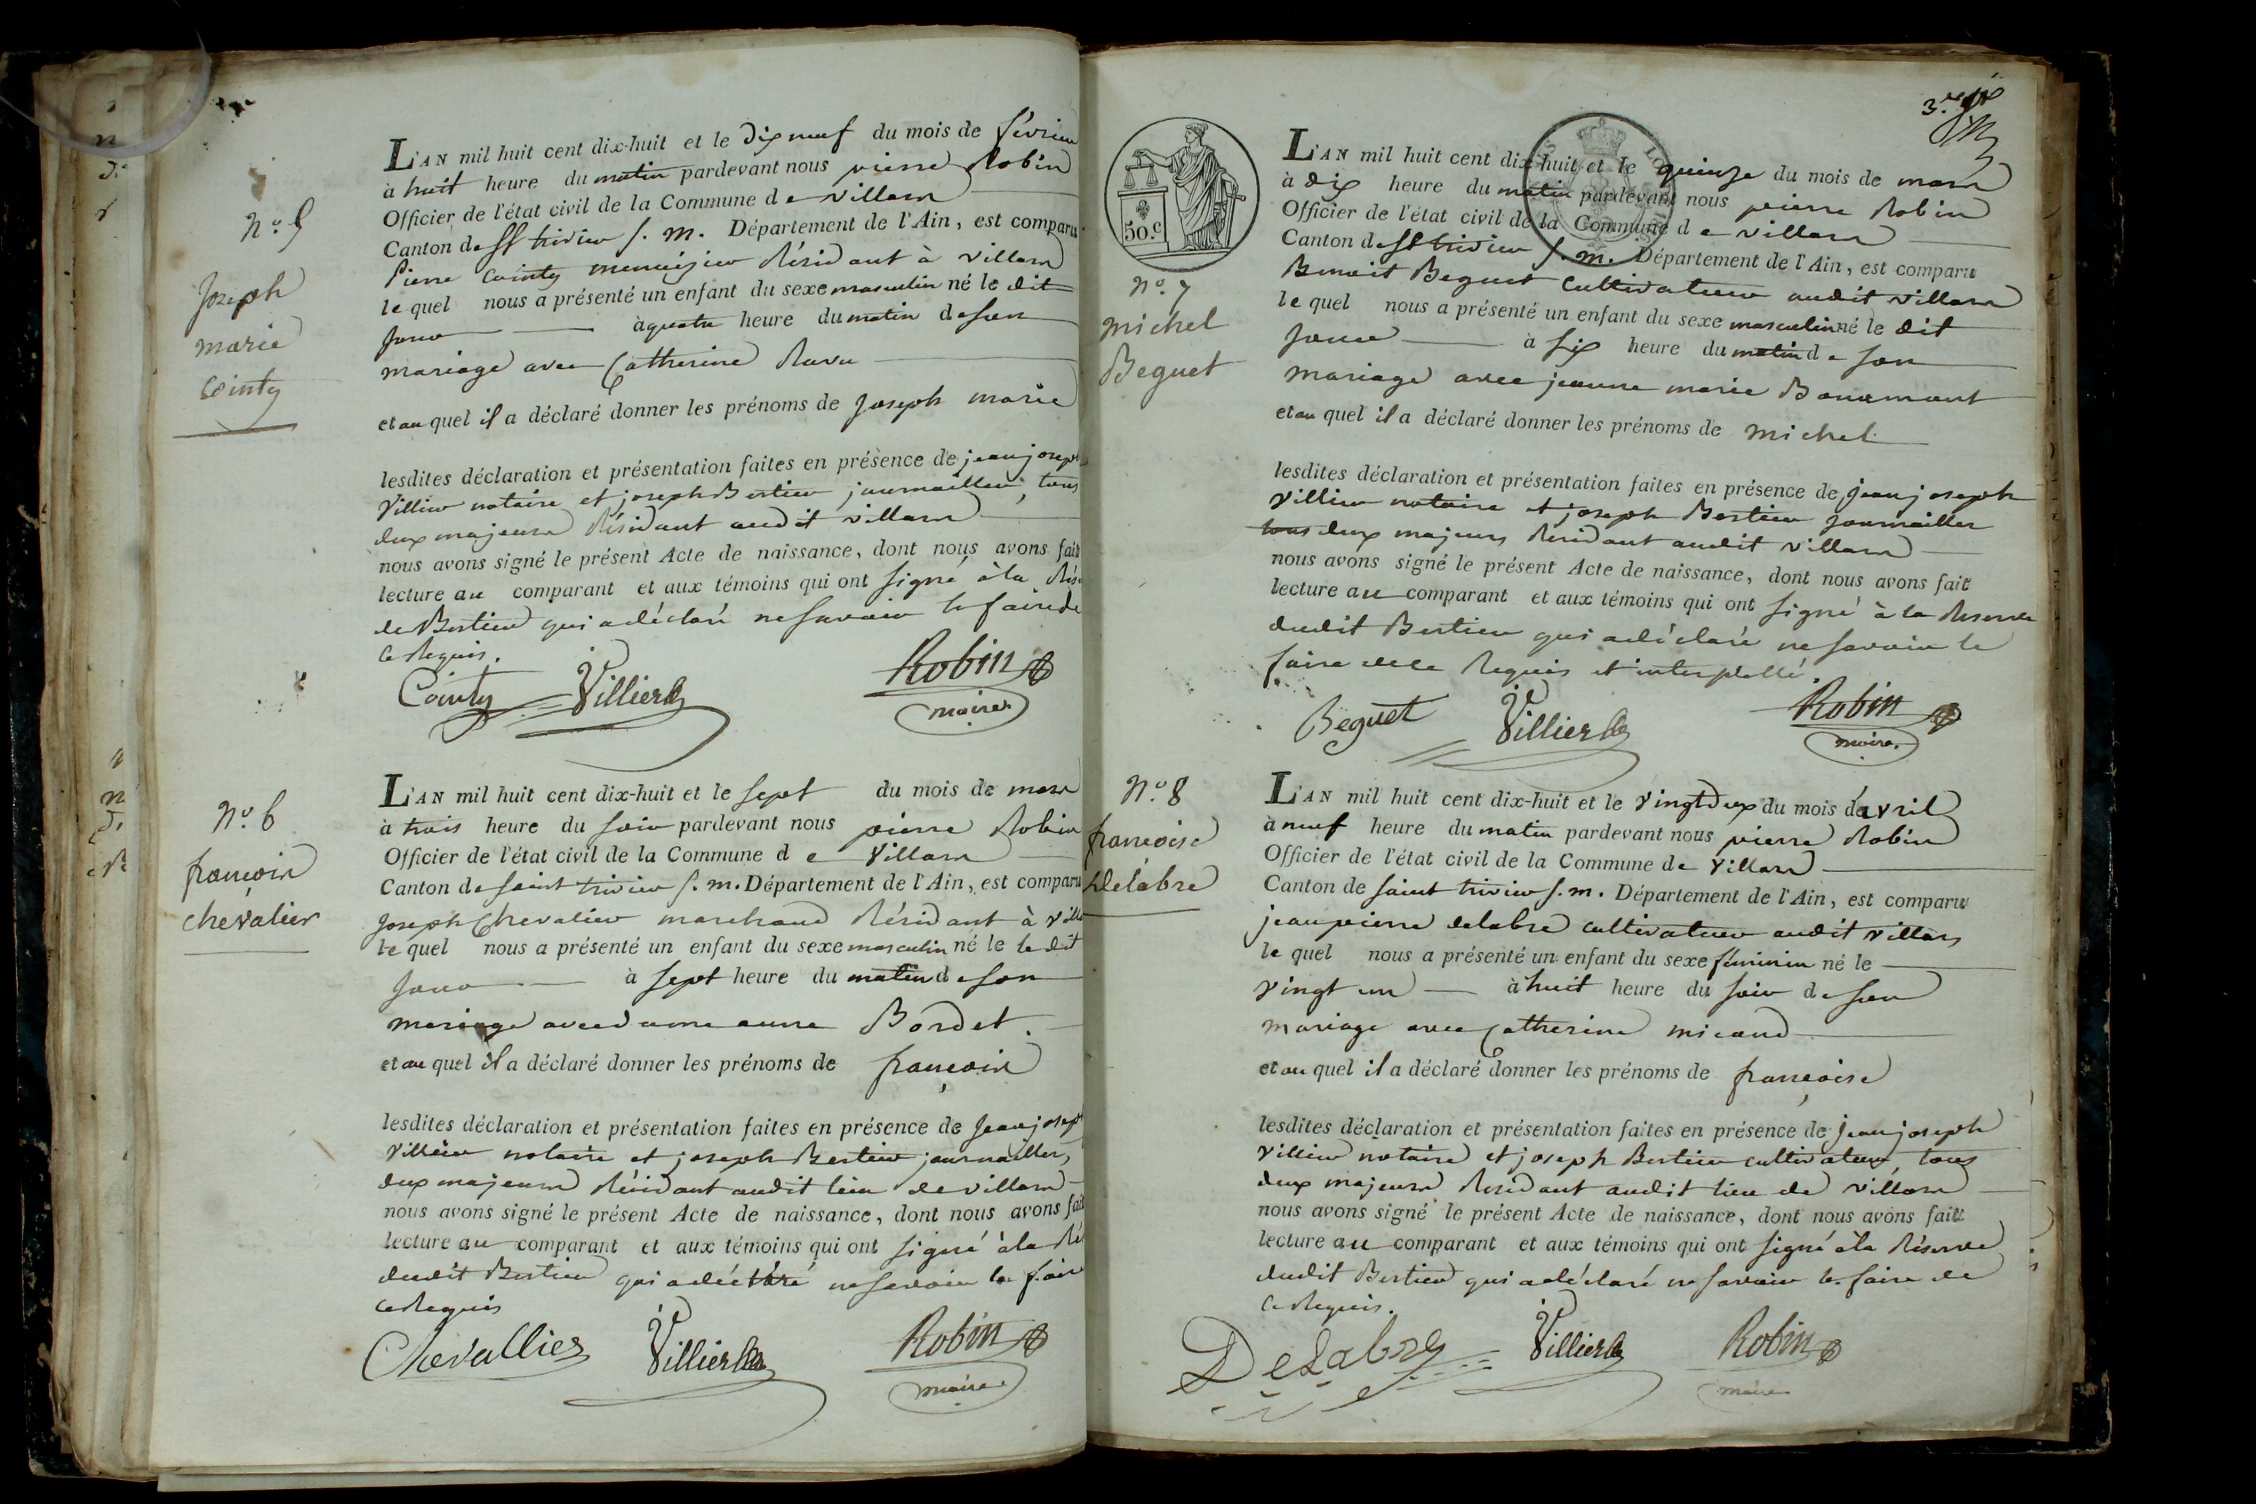 N.º 5
Joseph
marie
Cointy
L'AN mil huit cent dix-huit et le dix neuf du mois de février
à huit heure du matin pardevant nous pierre Robin
Officier de l'état civil de la Commune de villars
Canton de St trivier s. m. Département de l'Ain, est comparu
Pierre Cointy menuisier Résidant à villars
le quel nous a présenté un enfant du sexe masculin né le dit
jour à quatre heure du matin de son
mariage avec Catherine Ravu
et au quel il a déclaré donner les prénoms de Joseph marie
lesdites déclaration et présentation faites en présence de jean joseph
Villier notaire et joseph Bertier journallier, tous
deux majeurs Résidant audit villars
nous avons signé le présent Acte de naissance, dont nous avons fait
lecture au comparant et aux témoins qui ont signé à la Rés
de Bertier qui a déclaré ne savoir le faire de
ce Requis.
Cointy Villier Robin
maire
N.º 6
françois
chevalier
L'AN mil huit cent dix-huit et le sept du mois de mars
à trois heure du soir pardevant nous pierre Robin
Officier de l'état civil de la Commune de Villars
Canton de saint trivier s. m. Département de l'Ain, est comparu
Joseph Chevalier marchand Résidant à vill
le quel nous a présenté un enfant du sexe masculin né le le dit
jour à sept heure du matin de son
mariage avec dame anne Bordet.
et au quel il a déclaré donner les prénoms de françois
lesdites déclaration et présentation faites en présence de Jean joseph
Villier notaire et joseph Bertier journallier,
deux majeurs Résidant audit lieu de villars
nous avons signé le présent Acte de naissance, dont nous avons fait
lecture au comparant et aux témoins qui ont signé à la Ré
dudit Bertier qui a déclaré ne savoir le faire
ce Requis
Chevallier Villier Robin
maire
3.e
50.c
N.º 7
michel
Beguet
L'AN mil huit cent dix-huit et le quinze du mois de mars
à dix heure du matin pardevant nous pierre Robin
Officier de l'état civil de la Commune de villars
Canton de St trivier s. m. Département de l'Ain, est comparu
Benoit Beguet cultivateur audit villars
le quel nous a présenté un enfant du sexe masculin né le dit
jour à six heure du matin de son
mariage avec jeanne marie Bonnemant
et au quel il a déclaré donner les prénoms de michel
lesdites déclaration et présentation faites en présence de jean joseph
Villier notaire et joseph Bertier journallier
tous deux majeurs Résidant audit villars
nous avons signé le présent Acte de naissance, dont nous avons fait
lecture au comparant et aux témoins qui ont signé à la Reserve
dudit Bertier qui a déclaré ne savoir le
faire de ce Requis et interpellé.
Beguet Villier Robin
maire
N.º 8
françoise
Delabre
L'AN mil huit cent dix-huit et le vingt deux du mois d'avril
à neuf heure du matin pardevant nous pierre Robin
Officier de l'état civil de la Commune de villars
Canton de saint trivier s. m. Département de l'Ain, est comparu
jean pierre delabre cultivateur audit villars
le quel nous a présenté un enfant du sexe féminin né le
vingt un à huit heure du soir de son
mariage avec Catherine micaud
et au quel il a déclaré donner les prénoms de françoise
lesdites déclaration et présentation faites en présence de jean joseph
Villier notaire et joseph Bertier cultivateur, tous
deux majeurs Résidant audit lieu de villars
nous avons signé le présent Acte de naissance, dont nous avons fait
lecture au comparant et aux témoins qui ont signé à la Réserve
dudit Bertier qui a déclaré ne savoir le faire de
ce Requis.
Delabre Villier Robin
maire